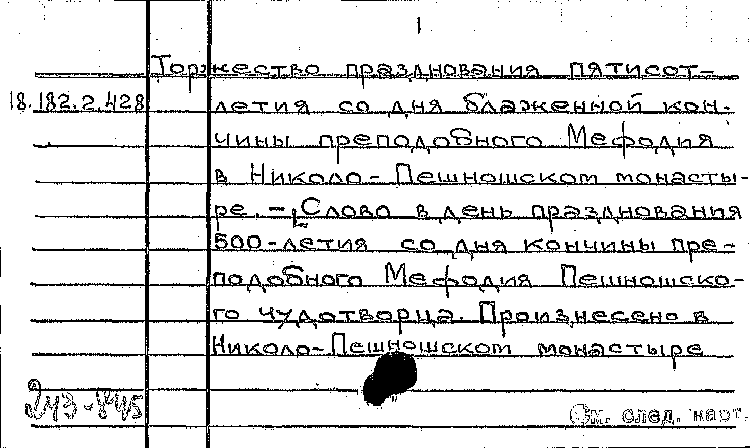 1
Торжество празднования пятисот-
18.182.2.428 летия со дня блаженной кон-
чины преподобного Мефодия
в Николо-Пешношском монасты-
ре. – Слово в день празднования
500-летия со дня кончины пре-
подобного Мефодия Пешношско-
го чудотворца. Произнесено в
Николо-Пешношском монастыре
243-845
См. след. карт.